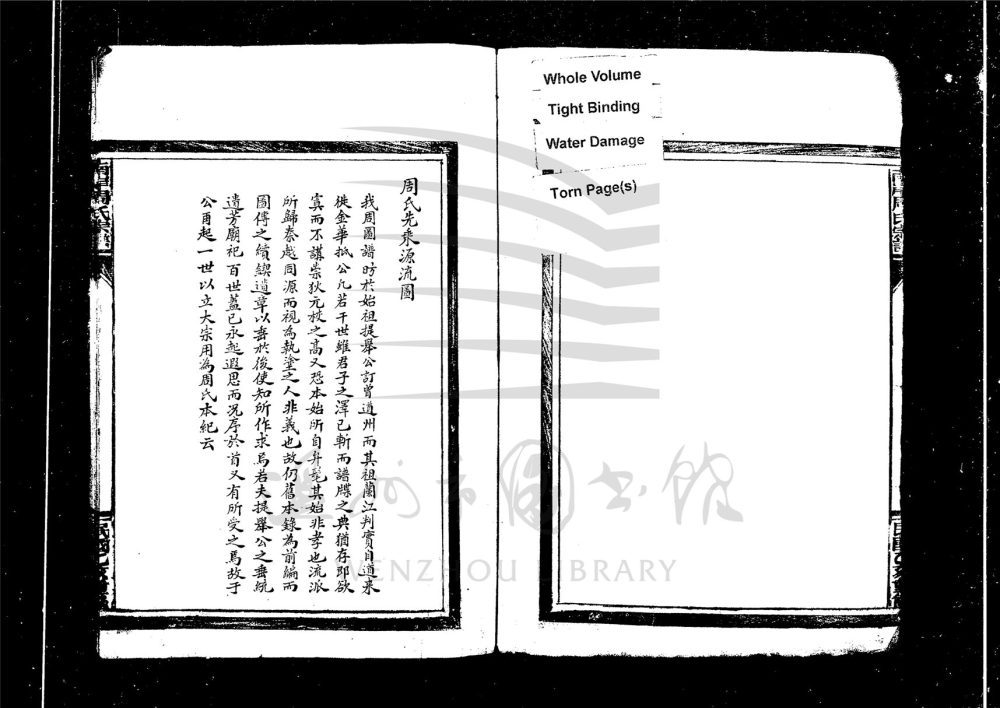 Whole Volume
Tight Binding
Water Damage
Torn Page(s)
周氏先乘源流圖
我周圖譜昉於始祖提舉公訂曾道州而其祖蘭江判實自道來
徙金華抵公凡若干世雖君子之澤已斬而譜牒之典猶存即欲
寘而不講崇狄元枚之高又恐本始所自弁髦其始非孝也流派
所歸秦越同源而視為執塗之人非義也故仍舊本錄為前編而
圖傳之續鍥遺章以垂於後使知所作求焉若夫提舉公之垂統
遺芳廟祀百世蓋已永起遐思而況序於首又有所受之焉故于
公再起一世以立大宗用為周氏本紀云
WENZHOU LIBRARY